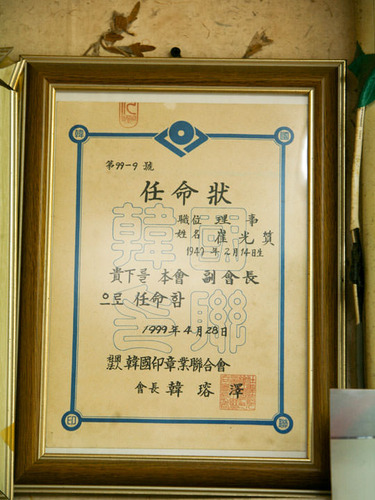 韓 國
第99-9 號
任命狀
職位 理 事
姓名 崔 光
1949年 2月14日生
貴下를 本會 副會長
으로 任命함
1999年 4月28日
韓國印章業聯合會
會長 韓 瑢 澤
印 聯
韓國
聯